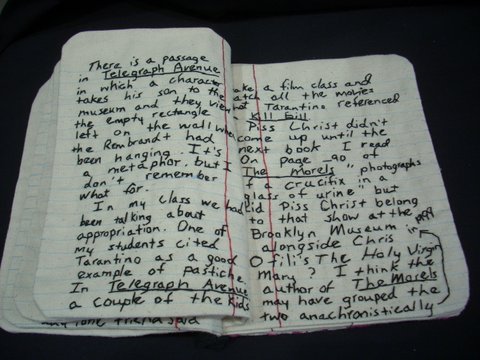 There is a passage
in Telegraph Avenue
in which a character
takes his son to the
museum and they view
the empty rectangle
left on the wall where
the Rembrandt had
been hanging. It's
a metaphor. but I
don't remember
what for.
In my class we had
been talking about
appropriation. One of
my students cited
Tarantino as a good
example of Pastiche.
In Telegraph Avenue
a couple of the kids
said
take a film class and
watch all the movies
that Tarantino referenced
Kill Bill
Piss Christ didn't
come up until the
next book I read
On page 90, of
The Morels "photographs
of a crucifix in a
glass of urine" but
did Piss Christ belong
to that show at the
Brooklyn Museum in 1999
alongside Chris
Ofili's The Holy Virgin
Mary? I think the
author of The Morels
may have grouped the
two anachronistically